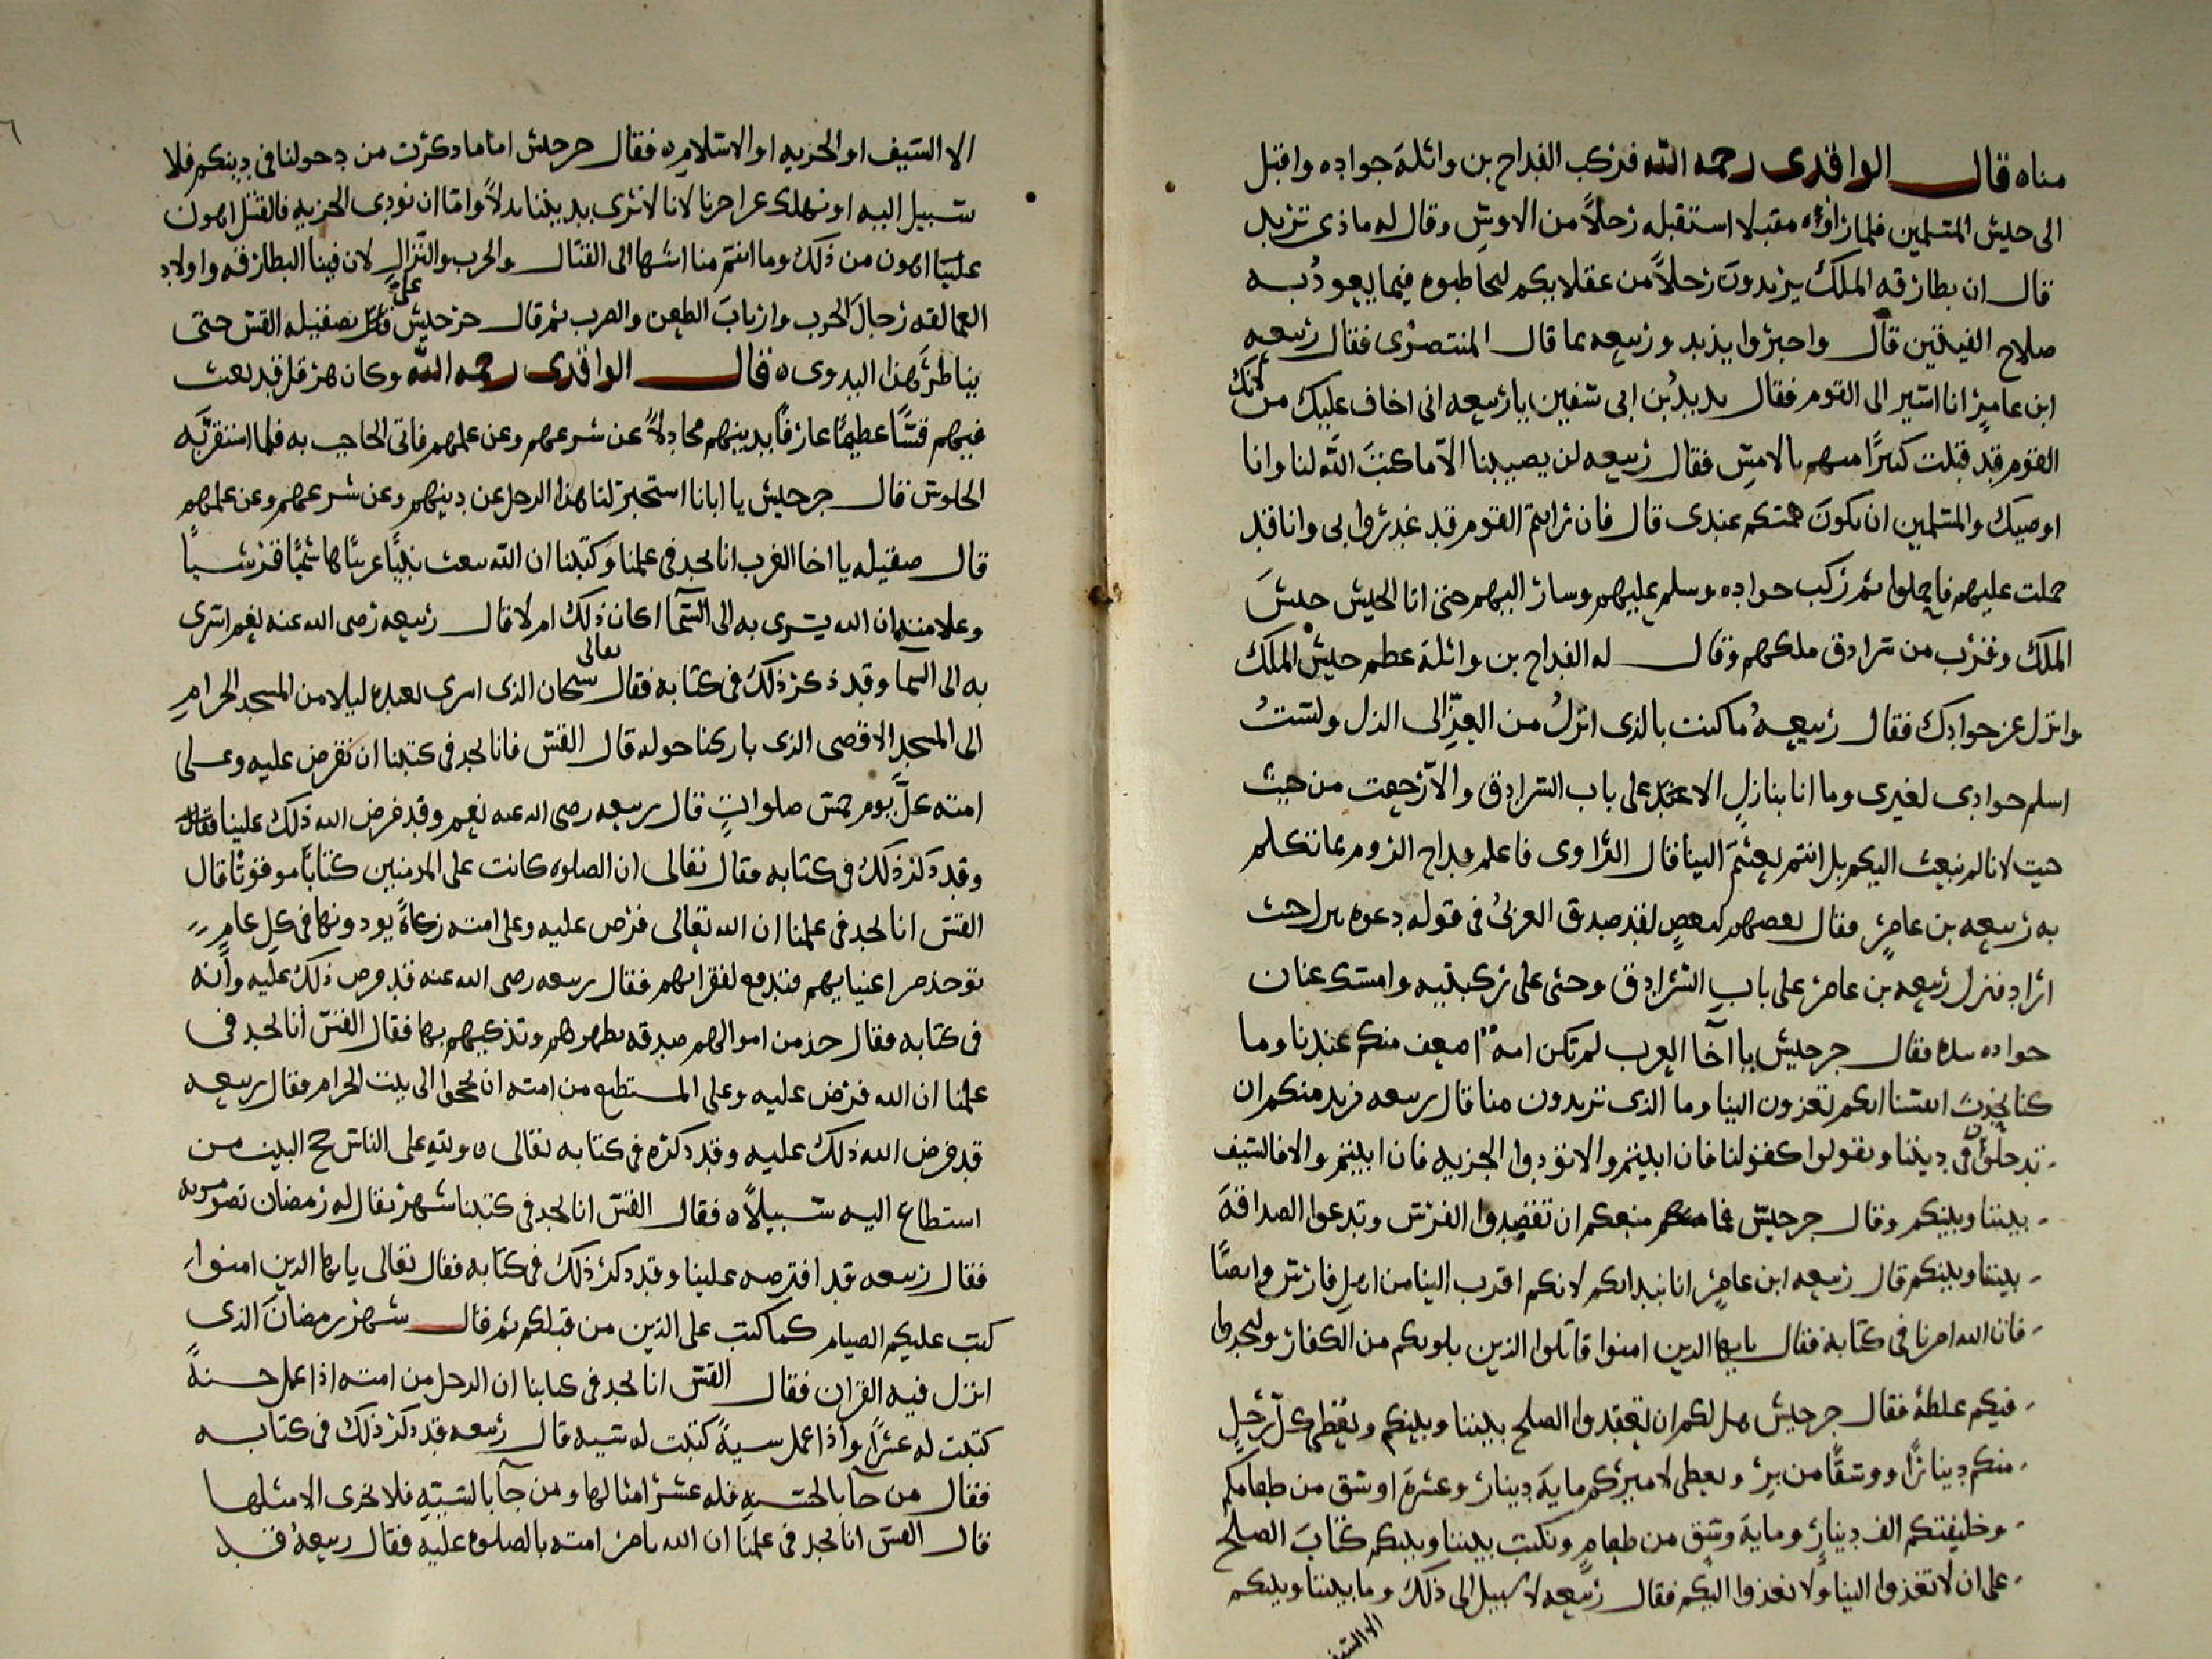 مناه قال الواقدى رحمه الله فركب القداح بن واثلة جواده واقبل
الى جيش المسلمين فلما راوه مقبلا استقبله رجلاً من الاوس وقال له ماذى تريد
قال ان بطارقه الملك يريدون رجلاً من عقلايكم ليخاطبوه فيما يعود به
صلاح الفيتين قال واخبروا يزيد وربيعه بما قال المنتصرى فقال ربيعه
ابن عامر انا اسير الى القوم فقال يزيد بن ابى سفين ياربيعه انى اخاف عليك من لانك
القوم قد قتلت كبيرًا منهم بالامس فقال ربيعه لن يصيبنا الا ما كتب الله لنا وانا
اوصيك والمسلمين ان يكون همتكم عندى قال فان رايتم القوم قد غدروا بى وانا قد
حملت عليهم فاحملوا ثم ركب جواده وسلم عليهم وسار اليهم حتى اتا الجيش جيش
الملك وقرب من سرادق ملكهم وقال له القداح بن واثلة عظم جيش الملك
وانزل عن جوادك فقال ربيعه ما كنت بالذى انزل من العز الى الذل ولست
اسلم جوادى لغيرى وما انا بنازل الا عند على باب السرادق والا رجعت من حيث
جيت لانا لم نبعث اليكم بل انتم بعثتم الينا قال الراوى فاعلم قداح الروم بما تكلم
به ربيعه بن عامر فقال بعضهم لبعض لقد صدق العربى فى قوله دعوه ينزل حيث
اراد فنزل ربيعه بن عامر على باب السرادق وجثى على ركبتيه وامسك عنان
جواده بيده فقال جرجيس يا اخا العرب لم تكن امه اضعف منكم عندنا وما
كنا نحدث انفسنا انكم تغزون الينا وما الذى تريدون منا قال ربيعه نريد منكم ان
تدخلون فى ديننا وتقولوا كقولنا فان ابيتم والا تودوا الجزيه فان ابيتم والا فالسيف
بيننا وبينكم وقال جرجيس فما منعكم ان تقصدوا الفرس وتدعوا الصداقة
بيننا وبينكم قال ربيعه ابن عامر انا نبدا بكم لانكم اقرب الينا من اهل فارس وايضًا
فان الله امرنا فى كتابه فقال يايها الدين امنوا قاتلوا الذين يلونكم من الكفار وليجدوا
فيكم غلظة فقال جرجيس هل لكم ان تعقدوا الصلح بيننا وبينكم ونعطى كل رجل
منكم دينارًا ووسقًا من بر ونعطى لاميركم مايه دينار وعشرة اوسق من طعامكم
وخليفتكم الف دينار ومايه وسق من طعام ونكتب بيننا وبينكم كتاب الصلح
على ان لا تغزوا الينا ولا نغزوا اليكم فقال ربيعه لا سبيل الى ذلك وما بيننا وبينكم
الا السيف
الا السيف او الجزيه او الاسلام ه فقال جرجيس اما ما ذكرت من دخولنا فى دينكم فلا
سبيل اليه او نهلك عن اخرنا لانا لا نرى بديننا بدلاً واما ان نودى الجزيه فالقتل اهون
علينا اهون من ذلك وما انتم منا اشها الى القتال والحرب والنزال لان فينا البطارقه واولاد
العمالقه رجال الحرب وارباب الطعن والضرب ثم قال جرجيس على بصقيله القس حتى
يناظر هذا البدوى ه فقال الواقدى رحمه الله وكان هرقل قد بعث
فيهم قسًا عظيمًا عارفًا بدينهم مجادلاً عن شرعهم وعن علمهم فاتى الحاجب به فلما استقر به
الجلوس قال جرجيس يا ابانا استخبر لنا هذا الرجل عن دينهم وعن شرعهم وعن علمهم
قال صقيله يا اخا العرب انا نجد فى علمنا وكتبنا ان الله يبعث نبيًا عربيًا هاشميًا قرشيًا
وعلامته ان الله يسرى به الى السما اكان ذلك ام لا قال ربيعه رضى الله عنه نعم اسرى
به الى السما وقد ذكر ذلك فى كتابه فقال تعالى سبحان الذى اسرى بعبده ليلا من المسجد الحرام
الى المسجد الاقصى الذى باركنا حوله قال القس فانا نجد فى كتبنا ان نفرض عليه وعلى
امته كل يوم خمس صلوات قال ربيعه رضى الله عنه نعم وقد فرض الله ذلك علينا فقال
وقد ذكر ذلك فى كتابه فقال تعالى ان الصلوه كانت على المومنين كتابًا موقوتًا قال
القس انا نجد فى علمنا ان الله تعالى فرض عليه وعلى امته زكاةً يودونها فى كل عام
توخذ من اغنيايهم فتدفع لفقرايهم فقال ربيعه رضى الله عنه قد فرض ذلك عليه وانه
فى كتابه فقال خذ من اموالهم صدقه تطهرهم وتذكيهم بها فقال القس انا نجد فى
علمنا ان الله فرض عليه وعلى المستطيع من امته ان يحجوا الى بيت الحرام فقال ربيعه
قد فرض الله ذلك عليه وقد ذكره فى كتابه تعالى ه ولله على الناس حج البيت من
استطاع اليه سبيلاً ه فقال القس انا نجد فى كتبنا شهر يقال له رمضان تصومونه
فقال ربيعه قد افترضه علينا وقد ذكر ذلك فى كتابه فقال تعالى يا يها الدين امنوا
كتب عليكم الصيام كما كتب على الذين من قبلكم ثم قال شهر رمضان الذى
انزل فيه القران فقال القس انا نجد فى كتابنا ان الرجل من امته اذا عمل حسنةً
كتبت له عشرًا واذا عمل سيةً كتبت له سيه قال ربيعه قد ذكر ذلك فى كتابه
فقال من جا بالحسنه فله عشر امثالها ومن جا بالسيه فلا يجزى الا مثلها
قال القس انا نجد فى علمنا ان الله يامر امته بالصلوه عليه فقال ربيعه قد